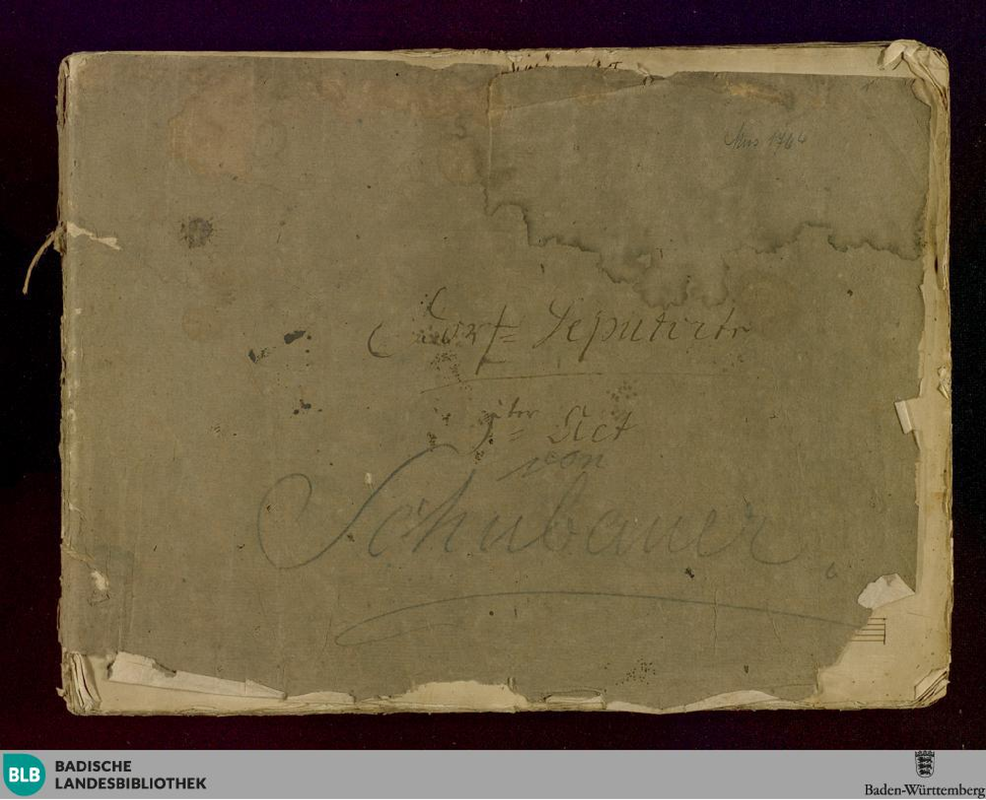 Mus 1764
Dorf= Deputirte
1ter Act
von
Schubauer
BLB
BADISCHE
LANDESBIBLIOTHEK
Baden-Württemberg